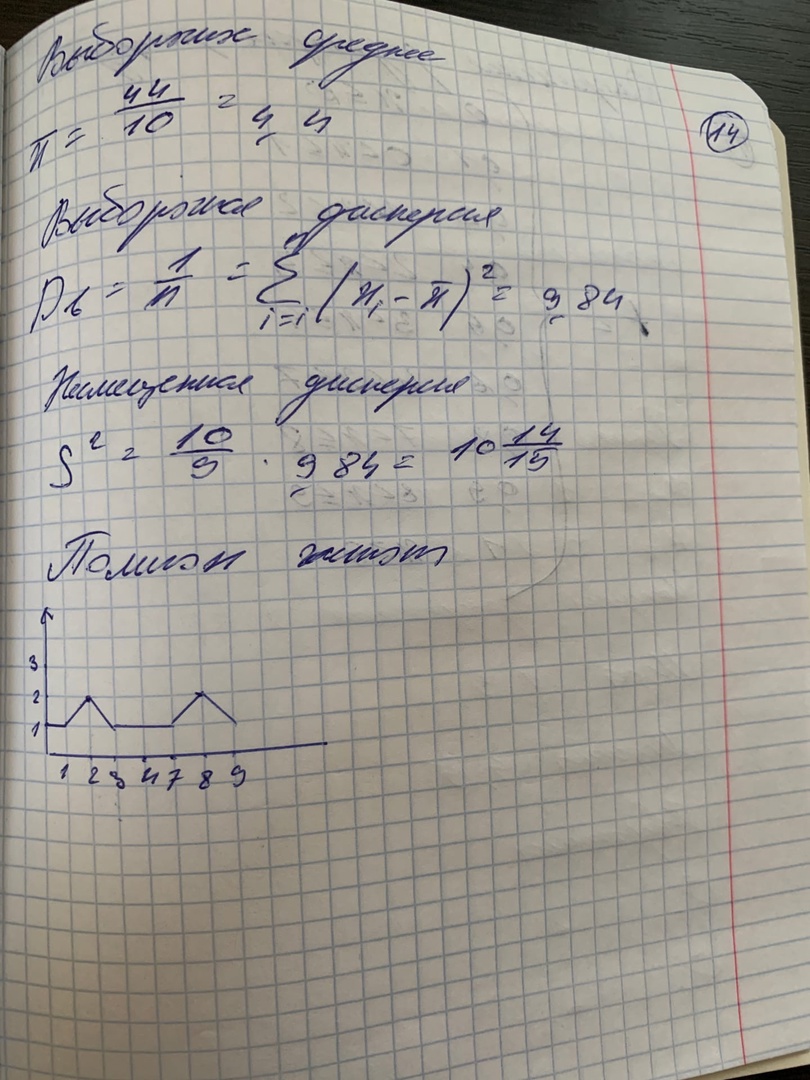 Выборочих среднее
14
x̄ = 44/10 = 4,4
Выборочная дисперсия
Dв = 1/n = Σ i=i (xᵢ - x̄)² = 9,84
Несмещенная дисперсия
S² = 10/9 · 9,84 = 10 14/15
Полигон частот
3
2
1
1 2 3 4 7 8 9